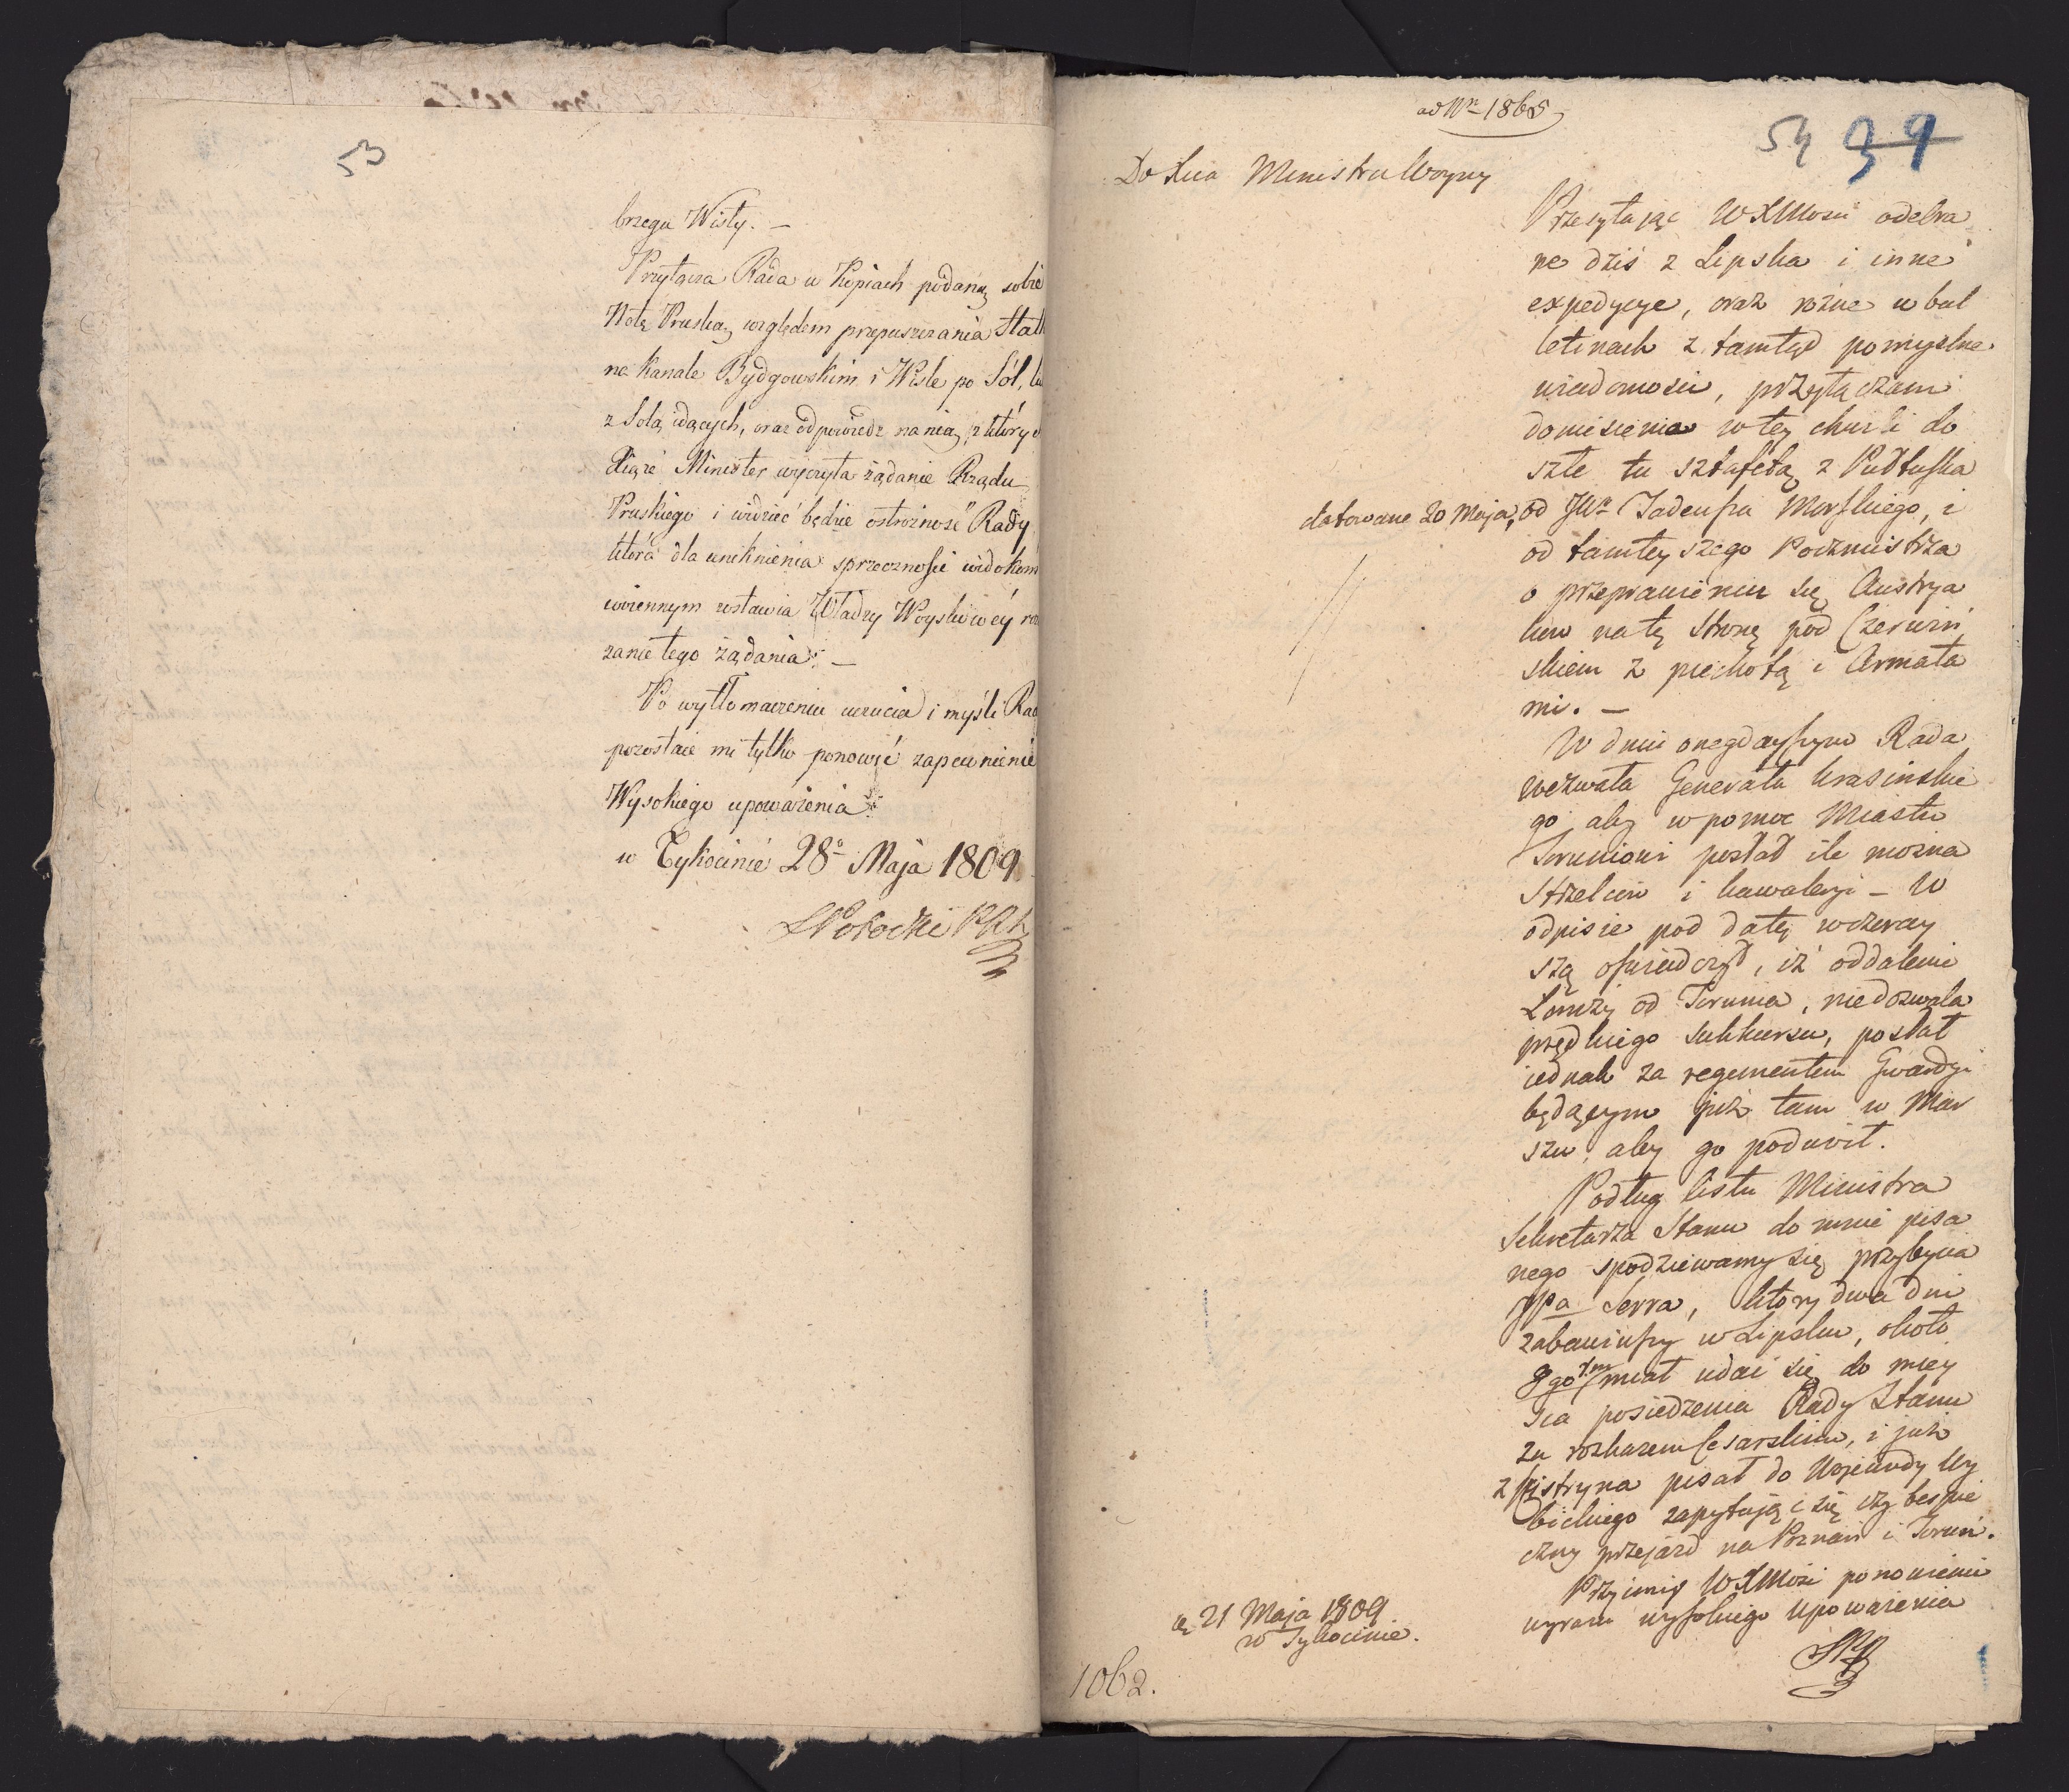 53
brzegu Wisły. —
Przyłącza Rada w Kopiach podaną sobie
Notę Pruską względem przepuszczania Stat
na Kanale Bydgowskim i Wiśle po Sól, lu
z Solą idących, oraz odpowiedz na nią, z który
Xiąże Minister wyczyta żądanie Rządu
Pruskiego i widzieć będzie ostrożność Rady
która dla uniknienia sprzeczności widokom
woiennym zostawia Władzy Woyskowéy ro
zanie tego żądania. —
Po wytłomaczeniu uczucia i myśli Rad
pozostaie mi tylko ponowić zapewnienie
Wysokiego upoważenia.
w Tykocinie 28º Maja 1809.
SPotocki PRM
ad Nr 1865
54 39
Do Xcia Ministra Woyny
Przesyłając WXMosci odebra
ne dziś z Lipska i inne
expedycye, oraz rożne w bul
letinach z tamtąd pomyslne
wiadomosci, przyłączam
doniesienia w tey chwili do
szłe tu sztafetą z Pułtuska
datowane 20 Maja, od JWo Tadeusza Morskiego, i
od tamteyszego Poczmistrza
o przeprawieniu się Austrya
kow na tę stronę pod Czerwiń
skiem z piechotą i Armata
mi. —
W dniu onegdayszym Rada
wezwała Generała Krasinskie
go aby w pomoc Miastu
Toruniowi posłał ile można
Strzelcow i kawaleryi — W
odpisie pod datą wczeray
szą oświadczył, iż oddalenie
Łomży od Torunia, niedozwala
prędkiego sukkursu, posłał
iednak za regimentem Gwardyi
będącym już tam w Mar
szu, aby go podwoił.
Podług listu Ministra
Sekretarza Stanu do mnie pisa
nego spodziewamy się przybycia
JPa Serra, ktory dwa dni
zabawiwszy w Lipsku, około
8go t.m. miał udać się do miey
sca posiedzenia Rady Stanu
za rozkazem Cesarskim, i już
z Kistryna pisał do Wojewody Wy
bickiego zapytując się czy bespie
czny przejazd na Poznań i Toruń.
Przyimiy WXMość ponowienie
wyrazu wysokiego upoważenia
SPP
21 Maja 1809
w Tykocinie.
1062.